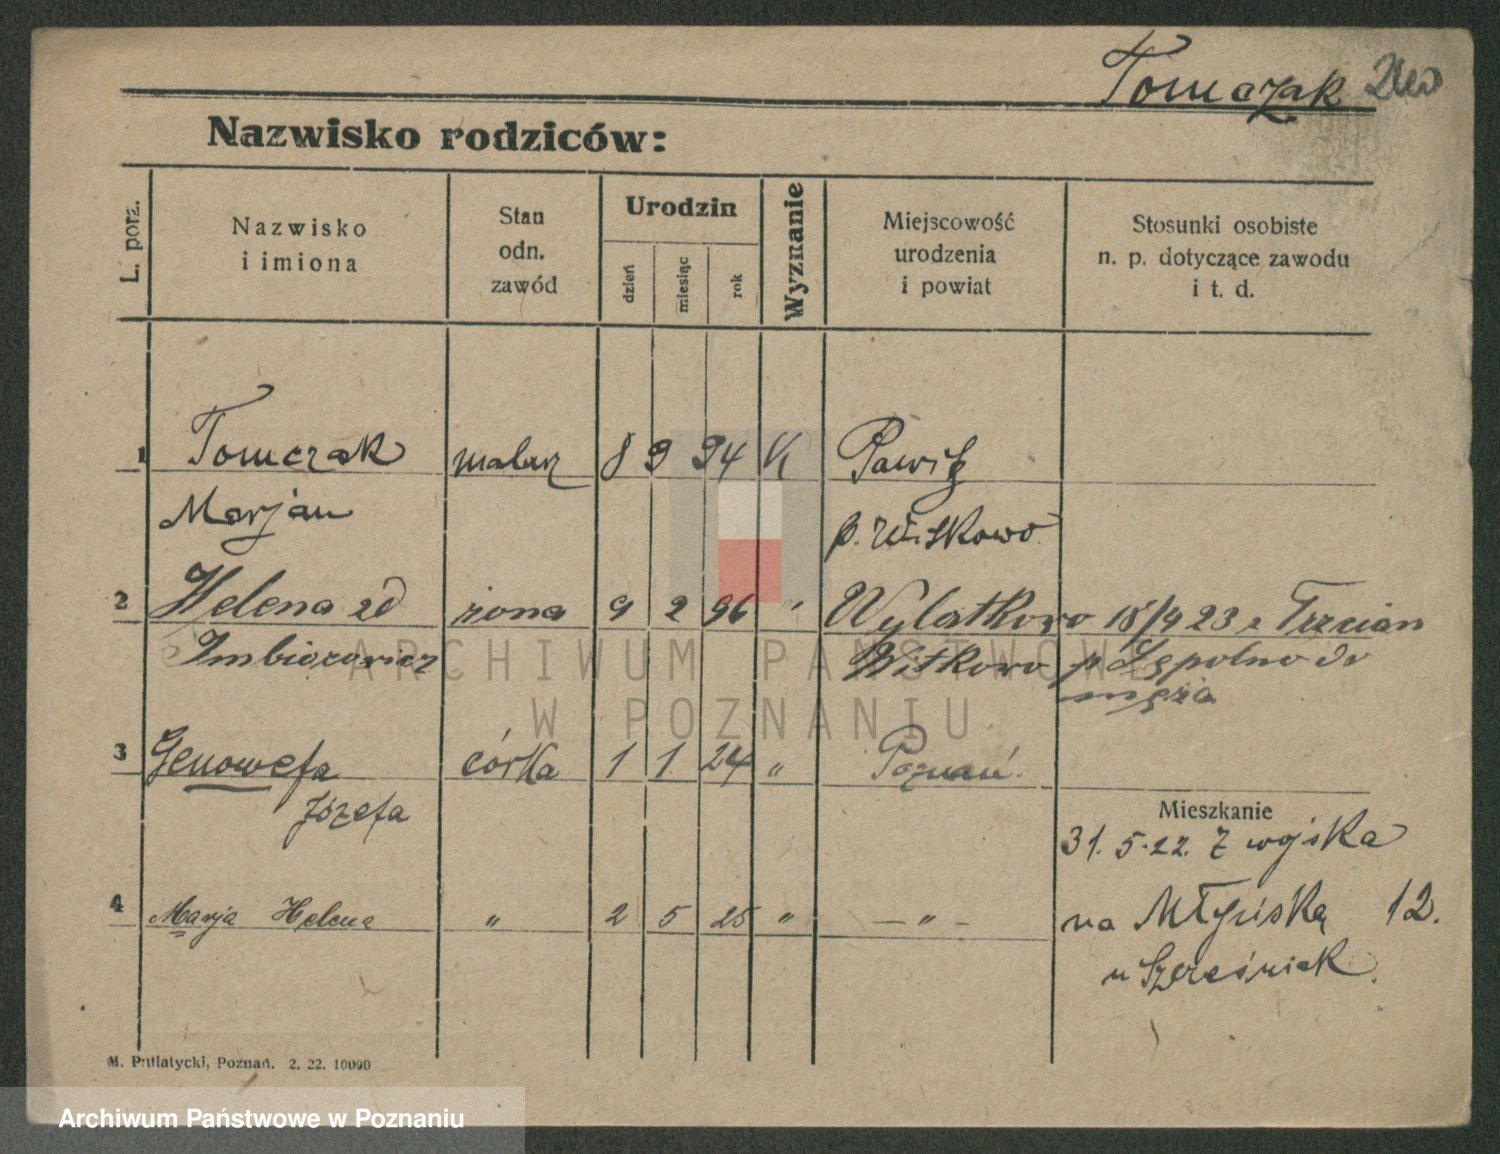 Tomczak
Nazwisko rodziców:
L. porz.
Nazwisko
i imiona
Stan
odn.
zawód
Urodzin
dzień
miesiąc
rok
Wyznanie
Miejscowość
urodzenia
i powiat
Stosunki osobiste
n. p. dotyczące zawodu
i t. d.
1 Tomczak malarz 8 9 94 K
Marjan
2 Helena zd żona 9 2 96 " Wylatkowo 18/9 23 z Trzcian
Imbiorowicz Witkowo p Sępolno do
męża
3 Genowefa córka 1 1 24 " Poznań.
Józefa
Mieszkanie
31. 5. 22. z wojska
4 Marja Helena " 2 5 25 " — " —
na Młyńską 12.
u Szcześniak.
M. Putiatycki, Poznań. 2. 22. 10000
ARCHIWUM PAŃSTWOWE
W POZNANIU
Archiwum Państwowe w Poznaniu